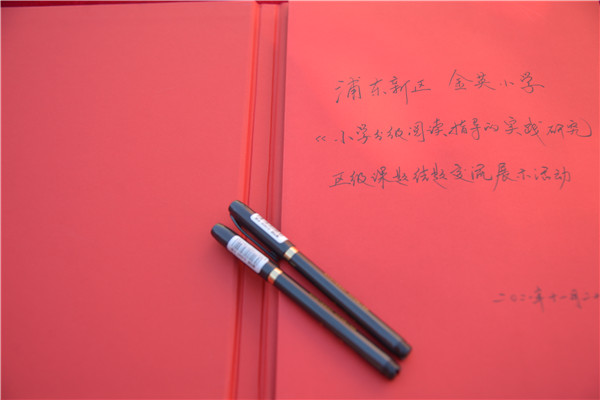 浦东新区 金英小学
《小学分级阅读指导的实践研究
区级课题结题交流展示活动
二〇二一年十一月二